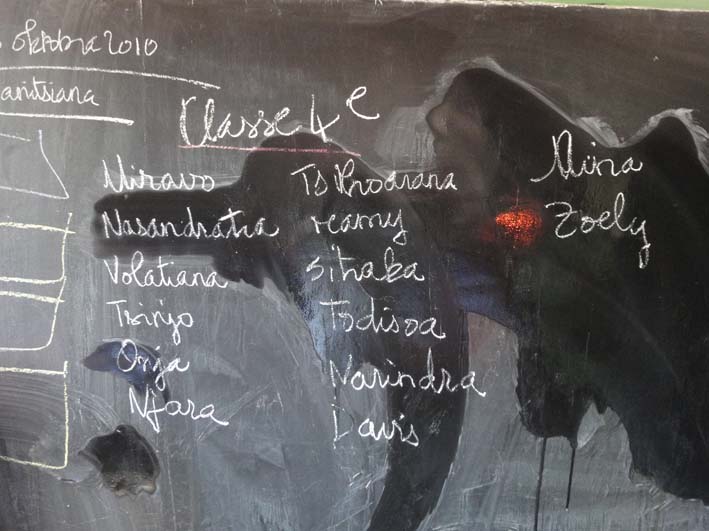 oktobra 2010
Classe 4e
Miravo
Nasandratra
Volatiana
Tsirijo
Onja
Njara
reamy
sitraka
Todisoa
Narindra
Davis
Mina
Zoely